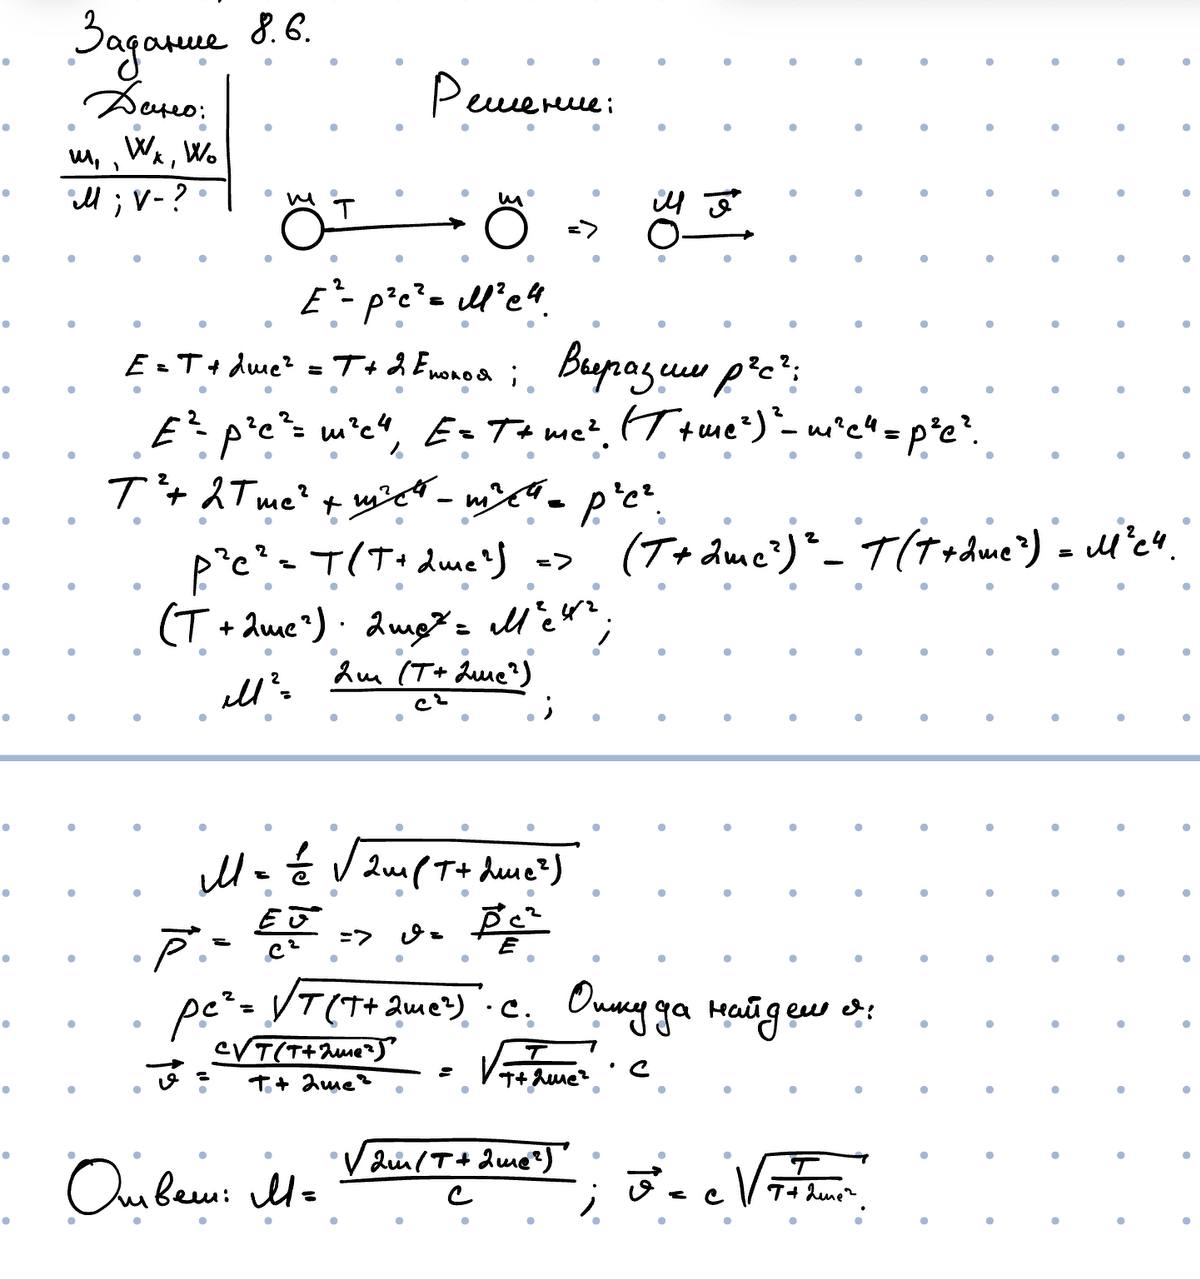 Задание 8.6.
Дано:
Решение:
m, , Wк, W₀
M ; V - ?
m T m => M v⃗
E² - p²c² = M²c⁴.
E = T + 2mc² = T + 2Eпокоя ; Выразим p²c²:
E² - p²c² = m²c⁴, E = T + mc². (T + mc²)² - m²c⁴ = p²c².
T² + 2Tmc² + m²c⁴ - m²c⁴ = p²c².
p²c² = T(T + 2mc²) => (T + 2mc²)² - T(T + 2mc²) = M²c⁴.
(T + 2mc²) · 2mc² = M²c⁴ ² ;
M² = 2m (T + 2mc²) / c² ;
M = 1/c √(2m(T + 2mc²))
p⃗ = E v⃗ / c² => v = p⃗ c² / E
pc² = √(T(T + 2mc²)) · c. Откуда найдем v:
v⃗ = c√(T(T + 2mc²)) / (T + 2mc²) = √(T / (T + 2mc²)) · c
Ответ: M = √(2m(T + 2mc²)) / c ; v⃗ = c √(T / (T + 2mc²)).